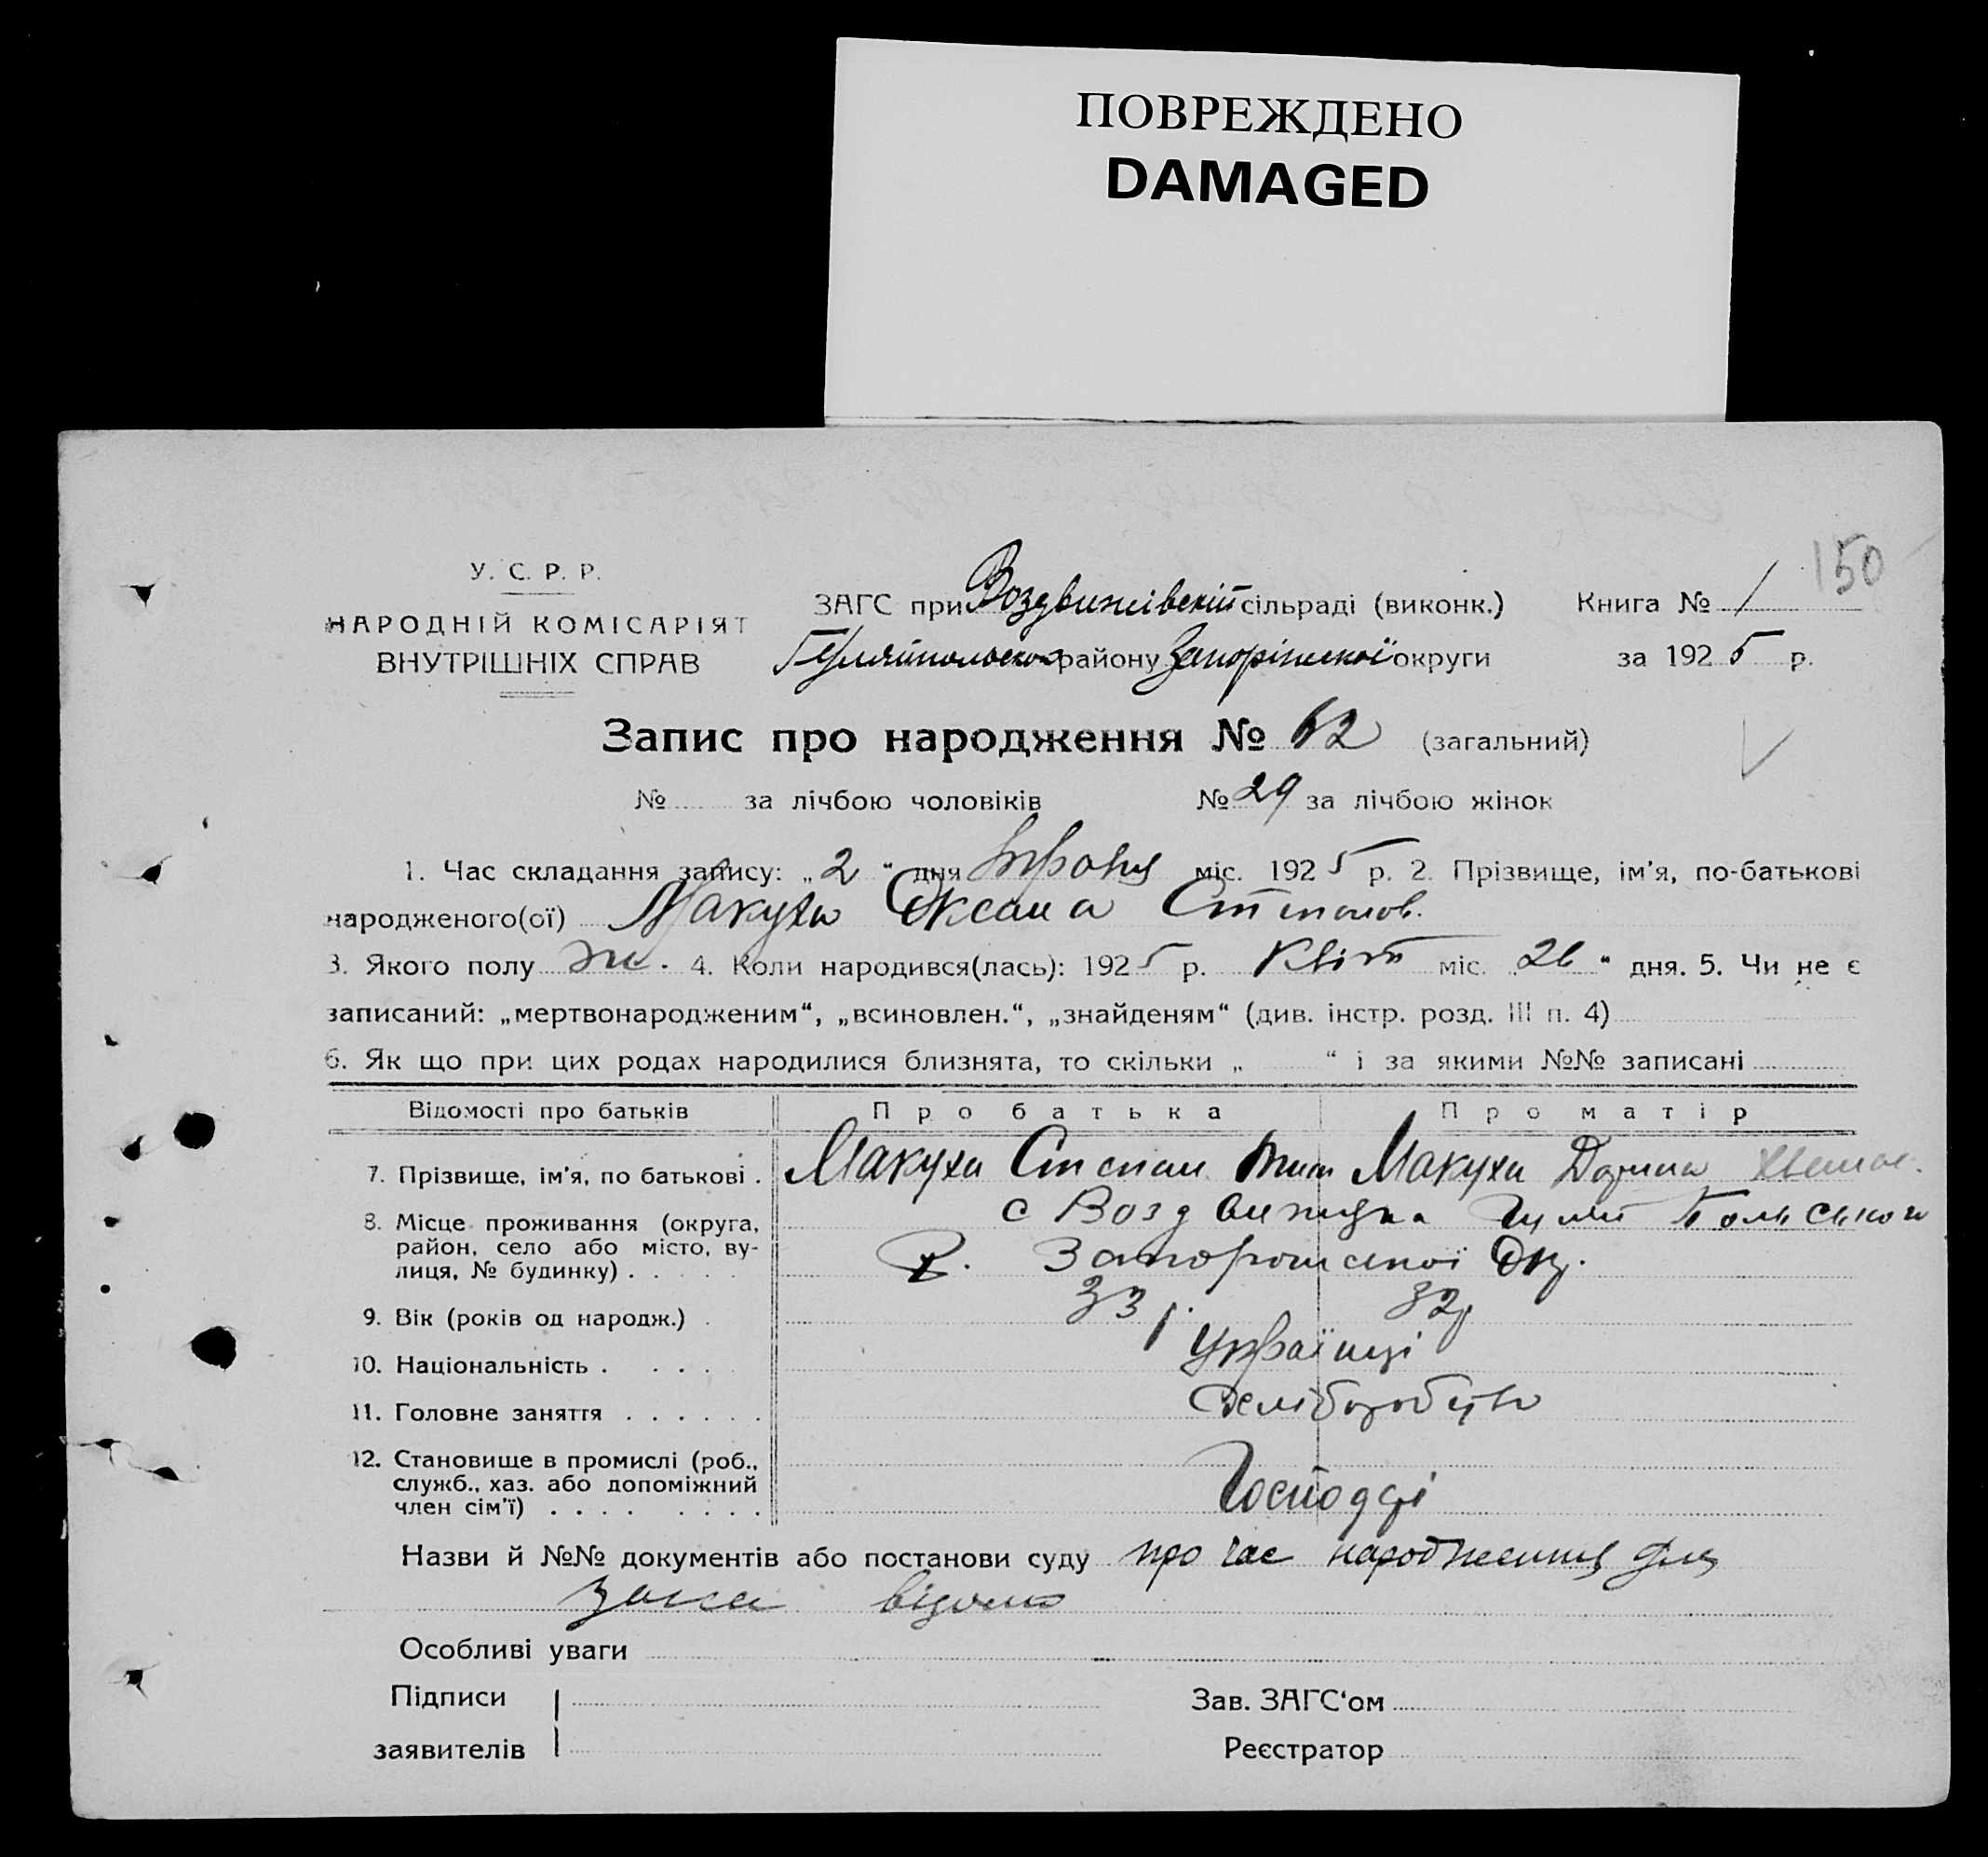 ПОВРЕЖДЕНО
DAMAGED
150
У. С. Р. Р.
НАРОДНІЙ КОМІСАРІЯТ
ВНУТРІШНІХ СПРАВ
ЗАГС при Воздвижівскій сільраді (виконк.) Книга № 1
району Запоріжскої округи за 1925 р.
Запис про народження № 62 (загальний)
№ за лічбою чоловіків № 29 за лічбою жінок
1. Час складання запису: „2“ дня міс. 1925 р. 2. Прізвище, ім'я, по-батькові
народженого(ої) Макуха Оксана Степанов.
3. Якого полу ж. 4. Коли народився(лась): 1925 р. Квіт міс. 26“ дня. 5. Чи не є
записаний: „мертвонародженим“, „всиновлен.“, „знайденям“ (див. інстр. розд. III п. 4)
6. Як що при цих родах народилися близнята, то скільки „ “ і за якими №№ записані
Відомості про батьків Про батька Про матір
7. Прізвище, ім'я, по батькові . Макуха Степан Макуха
8. Місце проживання (округа, район, село або місто, вулиця, № будинку) . . . . . с Воздвижувка
Р. Запорожскої Окр.
9. Вік (років од народж.) . 33 р. 32 р
10. Національність . . . . Українці
11. Головне заняття . . . . . . Хліборобств
12. Становище в промислі (роб., служб., хаз. або допоміжний член сім'ї) . . . . . . . . Господарі
Назви й №№ документів або постанови суду про час народження для
відомо
Особливі уваги
Підписи Зав. ЗАГС'ом
заявителів Реєстратор